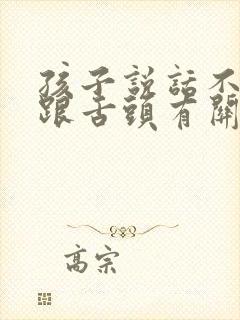 孩子説話不
跟舌頭有關
高宗